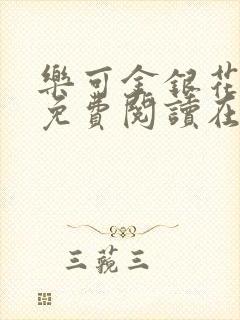 樂可金銀花
免費閱讀在
三蒬三